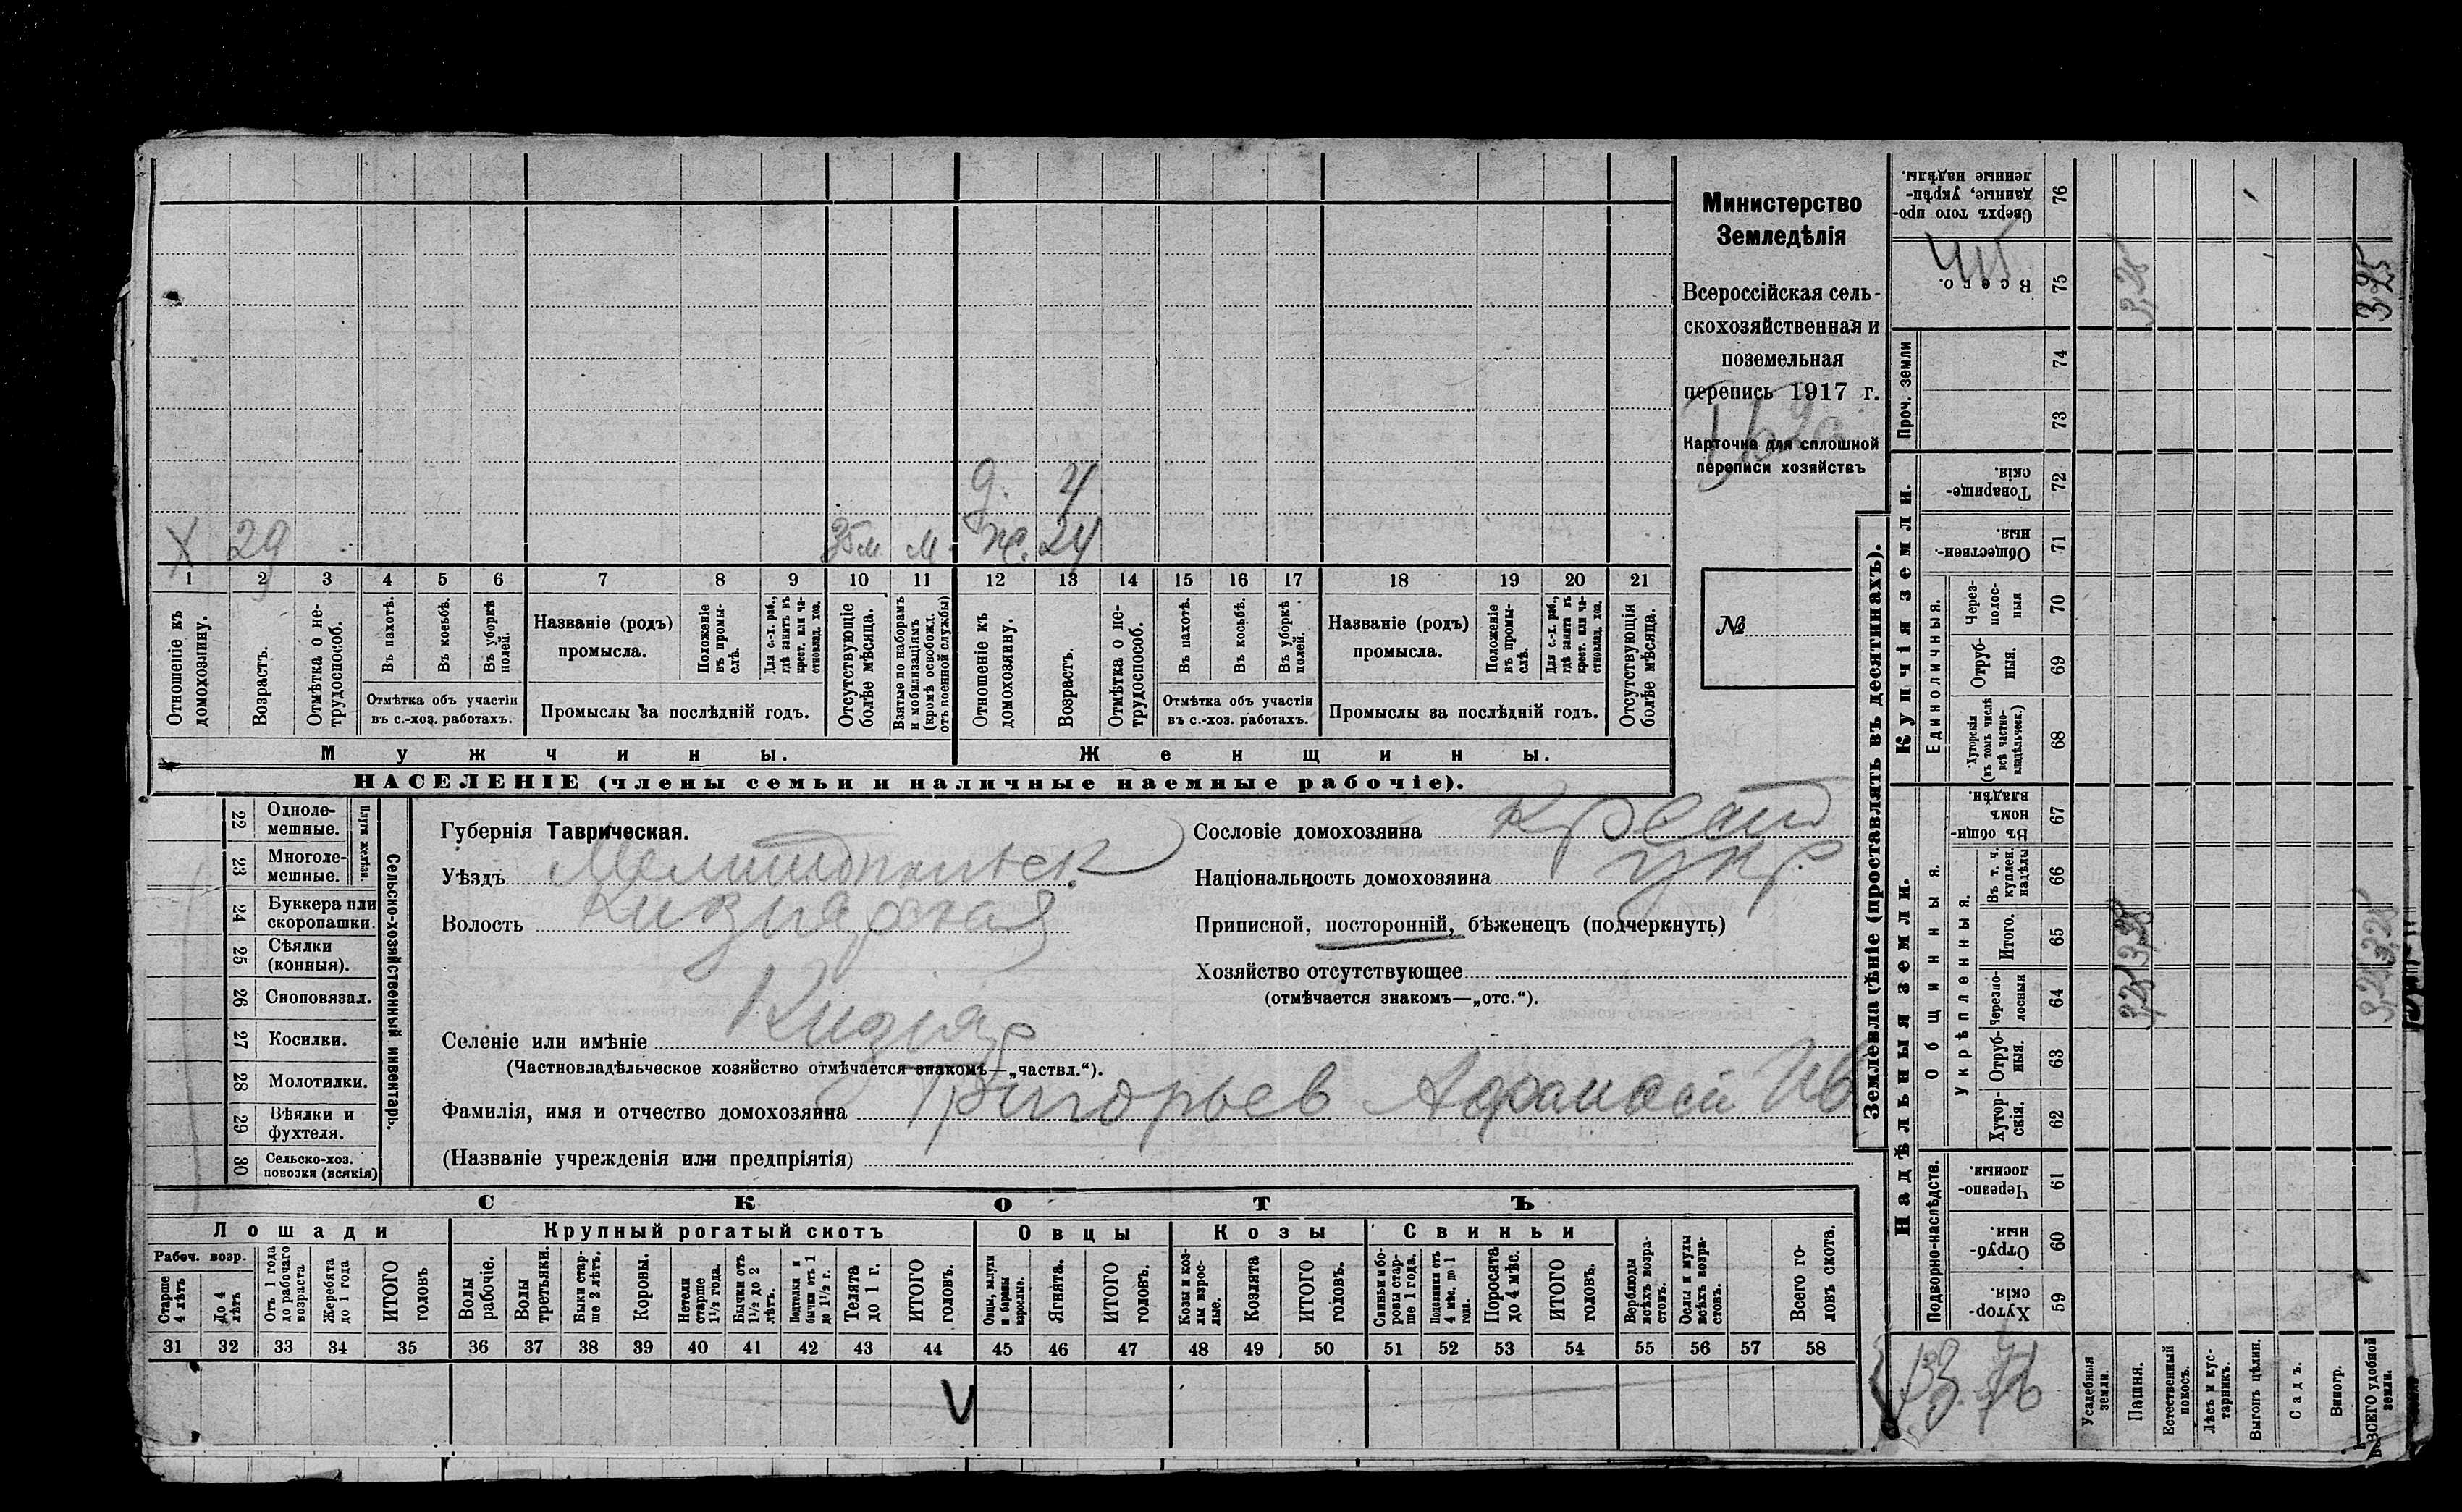 Министерство
Земледѣлія
Всероссійская сель-
скохозяйственная и
поземельная
перепись 1917 г.
Карточка для сплошной
переписи хозяйствъ
№
д. 4
Х 29 м. ж. 24
1 2 3 4 5 6 7 8 9 10 11 12 13 14 15 16 17 18 19 20 21
Отношеніе къ домохозяину.
Возрастъ.
Отмѣтка о не-трудоспособ.
Въ пахотѣ.
Въ косьбѣ.
Въ уборкѣ полей.
Отмѣтка объ участіи
въ с.-хоз. работахъ.
Названіе (родъ)
промысла.
Положеніе въ промы-слѣ.
Для с.-х. раб., гдѣ занятъ въ крест. или ча-стновлад. хоз.
Промыслы за послѣдній годъ.
Отсутствующіе болѣе мѣсяца.
Взятые по наборамъ и мобилизаціямъ (кромѣ освобожд. отъ военной службы)
Отношеніе къ домохозяину.
Возрастъ.
Отмѣтка о не-трудоспособ.
Въ пахотѣ.
Въ косьбѣ.
Въ уборкѣ полей.
Отмѣтка объ участіи
въ с.-хоз. работахъ.
Названіе (родъ)
промысла.
Положеніе въ промы-слѣ.
Для с.-х. раб., гдѣ занята въ крест. или ча-стновлад. хоз.
Промыслы за послѣдній годъ.
Отсутствующія болѣе мѣсяца.
Мужчины. Женщины.
НАСЕЛЕНІЕ (члены семьи и наличные наемные рабочіе).
Сельско-хозяйственный инвентарь.
Плуги желѣзн.
22 Одноле-мешные.
23 Многоле-мешные.
24 Буккера или скоропашки.
25 Сѣялки (конныя).
26 Сноповязал.
27 Косилки.
28 Молотилки.
29 Вѣялки и фухтеля.
30 Сельско-хоз. повозки (всякія)
Губернія Таврическая.
Уѣздъ Мелитопольск
Волость Кизиярская
Селеніе или имѣніе Кизияр
(Частновладѣльческое хозяйство отмѣчается знакомъ—„частвл.“).
Фамилія, имя и отчество домохозяина Григорьев Афанасій Ив
(Названіе учрежденія или предпріятія)
Сословіе домохозяина крест
Національность домохозяина укр.
Приписной, посторонній, бѣженецъ (подчеркнуть)
Хозяйство отсутствующее
(отмѣчается знакомъ—„отс.“).
СКОТЪ
Лошади Крупный рогатый скотъ Овцы Козы Свиньи
Рабоч. возр.
Старше 4 лѣтъ
До 4 лѣтъ
Отъ 1 года до рабочаго возраста
Жеребята до 1 года
ИТОГО головъ
Волы рабочіе.
Волы третьяки.
Быки стар-ше 2 лѣтъ.
Коровы.
Нетели старше 1½ года.
Бычки отъ 1½ до 2 лѣтъ.
Подтелки и бычки отъ 1 до 1½ г.
Телята до 1 г.
ИТОГО головъ.
Овцы, валухи и бараны взрослые.
Ягнята.
ИТОГО головъ.
Козы и коз-лы взрос-лые.
Козлята
ИТОГО головъ.
Свиньи и бо-ровы стар-ше 1 года.
Подсвинки отъ 4 мѣс. до 1 года.
Поросята до 4 мѣс.
ИТОГО головъ.
Верблюды всѣхъ возра-стовъ.
Ослы и мулы всѣхъ возра-стовъ.
Всего го-ловъ скота.
31 32 33 34 35 36 37 38 39 40 41 42 43 44 45 46 47 48 49 50 51 52 53 54 55 56 57 58
V
Землевладѣніе (проставлять въ десятинахъ).
Надѣльныя земли. Купчія земли.
Проч. земли
Подворно-наслѣдств.
Общинныя.
Укрѣпленныя.
Единоличныя.
Сверхъ того про-данные, укрѣп-ленные надѣлы. 76
Всего. 75 3,25 3,25
74
73
Товарище-скія. 72
Обществен-ныя. 71
Через-полос-ныя 70
Отруб-ныя. 69
Хуторскія (въ томъ числѣ всѣ частно-владѣльческ.) 68
Въ общин-номъ владѣн. 67
Въ т. ч. куплен. надѣлы 66
Итого. 65 3,25 3,25
Черезпо-лосныя 64 3,25 3,25
Отруб-ныя. 63
Хутор-скія. 62
Черезпо-лосныя. 61
Отруб-ныя. 60
Хутор-скія. 59
Усадебныя земли.
Пашня.
Естественный покосъ.
Лѣсъ и кус-тарникъ.
Выгонъ цѣлин.
Садъ.
Виногр.
ВСЕГО удобной земли.